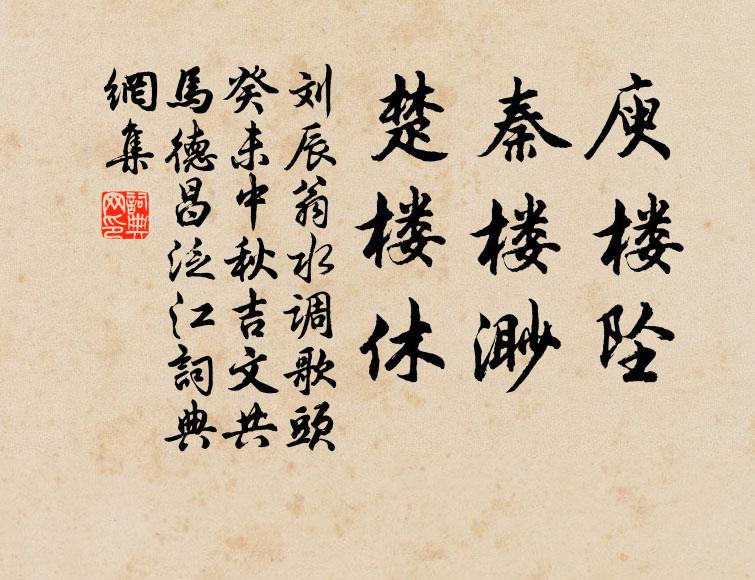 庾楼坠
秦楼渺
楚楼休
刘辰翁水调歌頭
癸未中秋吉文共
馬德昌泛江詞典
網集
詞典
网印